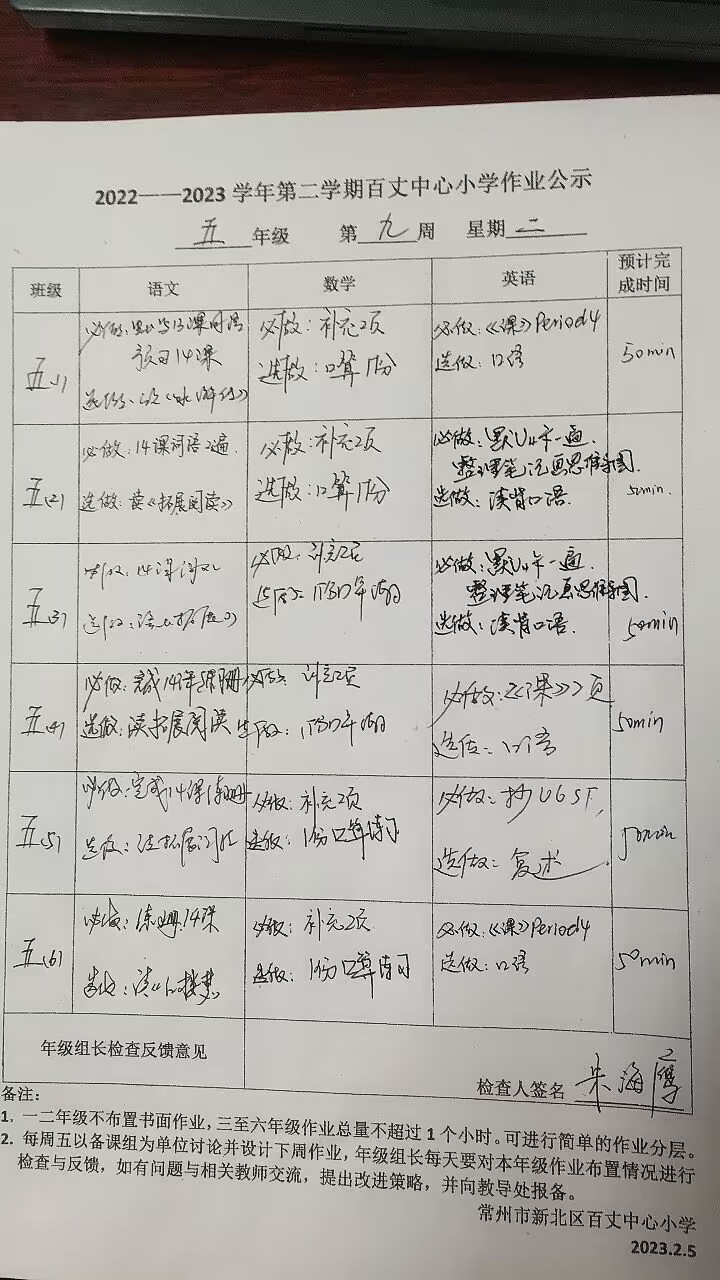 2022——2023 学年第二学期百丈中心小学作业公示
五 年级 第 九 周 星期 二
班级 语文 数学 英语 预计完成时间
五(1)
必做: 默写13课词语
预习14课
选做: 读《水浒传》
必做: 补充2页
选做: 口算1份
必做: 《课》Period4
选做: 口语
50min
五(2)
必做: 14课词语2遍.
选做: 读《拓展阅读》
必做: 补充2页
选做: 口算1份
必做: 默U4卡一遍.
整理笔记画思维导图.
选做: 读背口语.
50min.
五(3)
必做: 14课词汇
选做:
必做: 补充2页
选做: 1份口算练习
必做: 默U4卡一遍.
整理笔记画思维导图.
选做: 读背口语.
50min
五(4)
必做: 完成14课练册
选做: 读拓展阅读
必做: 补充2页
选做: 1份口算练习
必做: 《课》2页
选做: 口语
50min
五(5)
必做: 完成14课练册
选做: 读拓展阅读
必做: 补充2页
选做: 1份口算练习
必做: 抄U6ST,
选做: 复述
50min
五(6)
必做: 练册14课
选做: 读《红楼梦》
必做: 补充2页
选做: 1份口算练习
必做: 《课》Period4
选做: 口语
50min
年级组长检查反馈意见
检查人签名 朱海
备注:
1. 一二年级不布置书面作业，三至六年级作业总量不超过 1 个小时。可进行简单的作业分层。
2. 每周五以备课组为单位讨论并设计下周作业，年级组长每天要对本年级作业布置情况进行
检查与反馈，如有问题与相关教师交流，提出改进策略，并向教导处报备。
常州市新北区百丈中心小学
2023.2.5